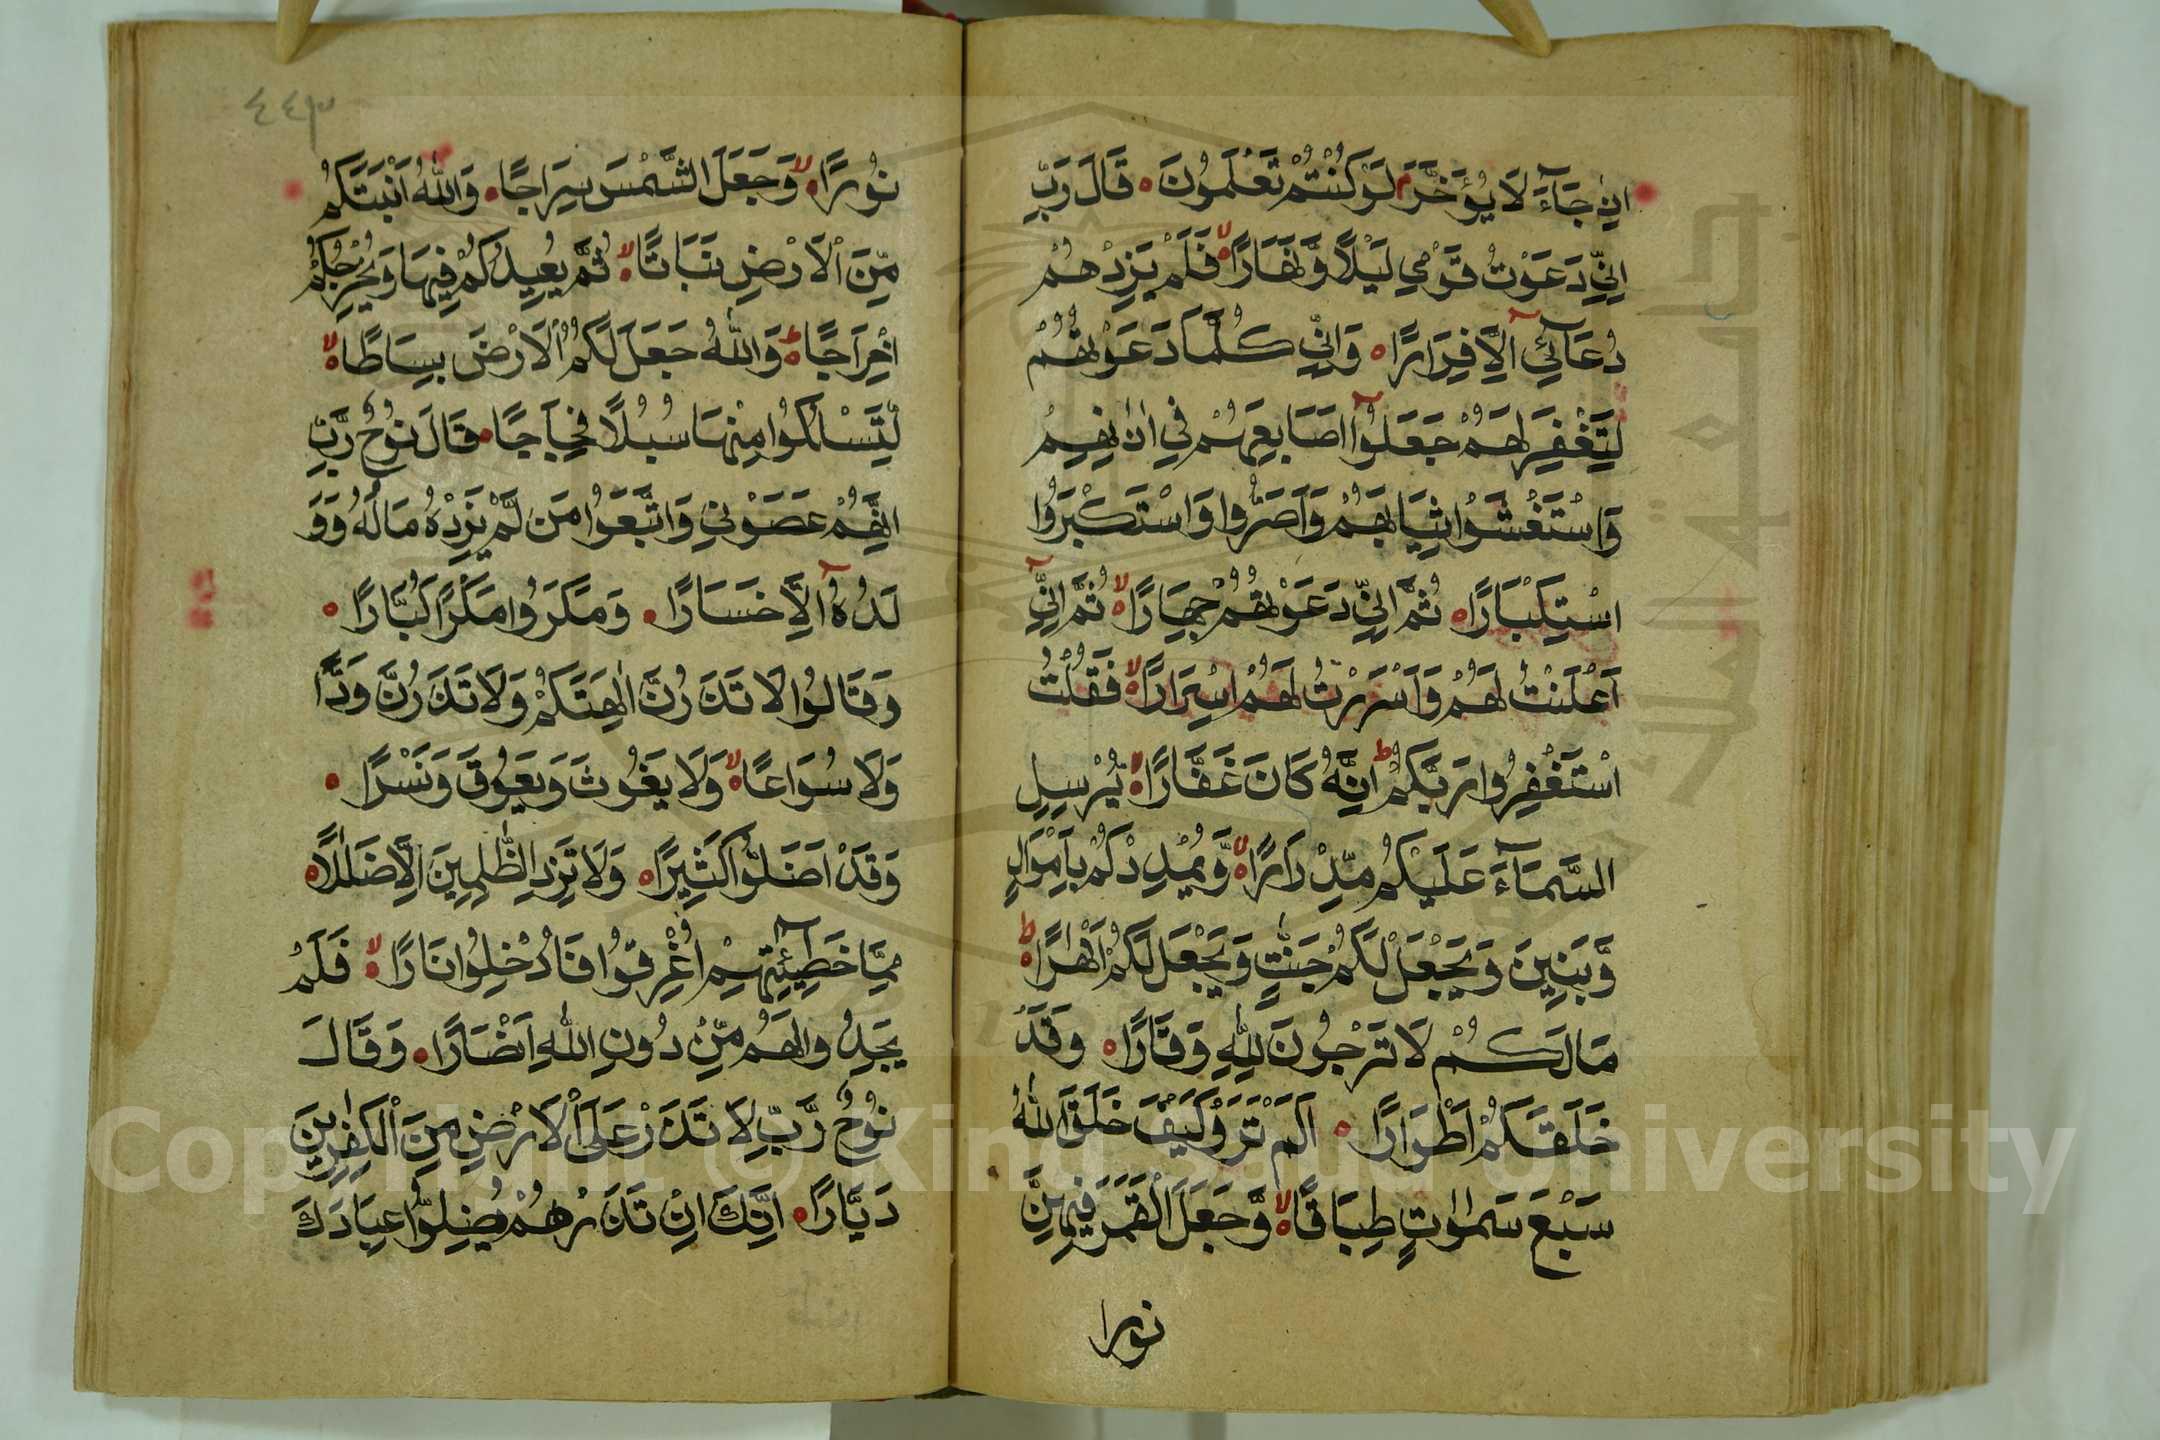 اِذَا جَآءَ لَا يُؤَخَّرُ لَوْ كُنْتُمْ تَعْلَمُونَ قَالَ رَبِّ
اِنِّي دَعَوْتُ قَوْمِي لَيْلًا وَّنَهَارًا فَلَمْ يَزِدْهُمْ
دُعَآئِي اِلَّا فِرَارًا وَاِنِّي كُلَّمَا دَعَوْتُهُمْ
لِتَغْفِرَ لَهُمْ جَعَلُوْٓا اَصَابِعَهُمْ فِي اٰذَانِهِمْ
وَاسْتَغْشَوْا ثِيَابَهُمْ وَاَصَرُّوا وَاسْتَكْبَرُوا
اسْتِكْبَارًا ثُمَّ اِنِّي دَعَوْتُهُمْ جِهَارًا ثُمَّ اِنِّيٓ
اَعْلَنْتُ لَهُمْ وَاَسْرَرْتُ لَهُمْ اِسْرَارًا فَقُلْتُ
اسْتَغْفِرُوا رَبَّكُمْ اِنَّهُ كَانَ غَفَّارًا يُرْسِلِ
السَّمَآءَ عَلَيْكُمْ مِّدْرَارًا وَّيُمْدِدْكُمْ بِاَمْوَالٍ
وَّبَنِينَ وَيَجْعَلْ لَكُمْ جَنّٰتٍ وَيَجْعَلْ لَكُمْ اَنْهٰرًا
مَالَكُمْ لَا تَرْجُونَ لِلّٰهِ وَقَارًا وَقَدْ
خَلَقَكُمْ اَطْوَارًا اَلَمْ تَرَوْا كَيْفَ خَلَقَ اللّٰهُ
سَبْعَ سَمٰوٰتٍ طِبَاقًا وَّجَعَلَ الْقَمَرَ فِيهِنَّ
نورا
٤٤٣
نُورًا وَّجَعَلَ الشَّمْسَ سِرَاجًا وَاللّٰهُ اَنْبَتَكُمْ
مِّنَ الْاَرْضِ نَبَاتًا ثُمَّ يُعِيدُكُمْ فِيهَا وَيُخْرِجُكُمْ
اِخْرَاجًا وَاللّٰهُ جَعَلَ لَكُمُ الْاَرْضَ بِسَاطًا
لِّتَسْلُكُوا مِنْهَا سُبُلًا فِجَاجًا قَالَ نُوحٌ رَّبِّ
اِنَّهُمْ عَصَوْنِي وَاتَّبَعُوا مَنْ لَّمْ يَزِدْهُ مَالُهُ وَوَ
لَدُهُٓ اِلَّا خَسَارًا وَمَكَرُوا مَكْرًا كُبَّارًا
وَقَالُوا لَا تَذَرُنَّ اٰلِهَتَكُمْ وَلَا تَذَرُنَّ وَدًّا
وَلَا سُوَاعًا وَلَا يَغُوثَ وَيَعُوقَ وَنَسْرًا
وَقَدْ اَضَلُّوا كَثِيرًا وَلَا تَزِدِ الظّٰلِمِينَ اِلَّا ضَلٰلًا
مِمَّا خَطِيٓئٰتِهِمْ اُغْرِقُوا فَاُدْخِلُوا نَارًا فَلَمْ
يَجِدُوا لَهُمْ مِّنْ دُونِ اللّٰهِ اَنْصَارًا وَقَالَ
نُوحٌ رَّبِّ لَا تَذَرْ عَلَى الْاَرْضِ مِنَ الْكٰفِرِينَ
دَيَّارًا اِنَّكَ اِنْ تَذَرْهُمْ يُضِلُّوا عِبَادَكَ
Copyright © King Saud University